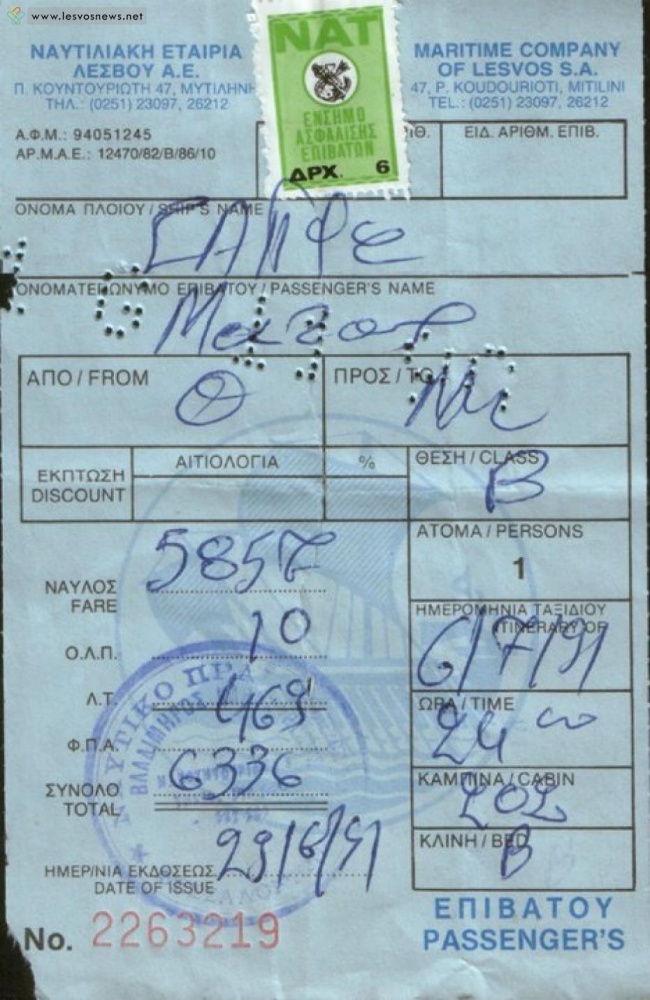 www.lesvosnews.net
ΝΑΥΤΙΛΙΑΚΗ ΕΤΑΙΡΙΑ
ΛΕΣΒΟΥ Α.Ε.
Π. ΚΟΥΝΤΟΥΡΙΩΤΗ 47, ΜΥΤΙΛΗΝΗ
ΤΗΛ.: (0251) 23097, 26212
NAT
ΕΝΣΗΜΟ
ΑΣΦΑΛΙΣΗΣ
ΕΠΙΒΑΤΩΝ
ΔΡΧ. 6
MARITIME COMPANY
OF LESVOS S.A.
47, P. KOUDOURIOTI, MITILINI
TEL.: (0251) 23097, 26212
Α.Φ.Μ.: 94051245
ΑΡ.Μ.Α.Ε.: 12470/82/Β/86/10
ΕΙΔ. ΑΡΙΘΜ. ΕΠΙΒ.
ΟΝΟΜΑ ΠΛΟΙΟΥ / SHIP'S NAME
ΣΑΠΦΩ
ΟΝΟΜΑΤΕΠΩΝΥΜΟ ΕΠΙΒΑΤΟΥ / PASSENGER'S NAME
ΑΠΟ / FROM
Θ
ΠΡΟΣ / TO
ΕΚΠΤΩΣΗ
DISCOUNT
ΑΙΤΙΟΛΟΓΙΑ
%
ΘΕΣΗ / CLASS
B
ΑΤΟΜΑ / PERSONS
1
ΝΑΥΛΟΣ
FARE
5857
Ο.Λ.Π.
10
Λ.Τ.
469
Φ.Π.Α.
ΣΥΝΟΛΟ
TOTAL
6336
ΗΜΕΡΟΜΗΝΙΑ ΤΑΞΙΔΙΟΥ
ITINERARY OF
6/7/91
ΩΡΑ / TIME
24 00
ΚΑΜΠΙΝΑ / CABIN
202
ΚΛΙΝΗ / BED
B
ΗΜΕΡ/ΝΙΑ ΕΚΔΟΣΕΩΣ
DATE OF ISSUE
29/6/91
No. 2263219
ΕΠΙΒΑΤΟΥ
PASSENGER'S